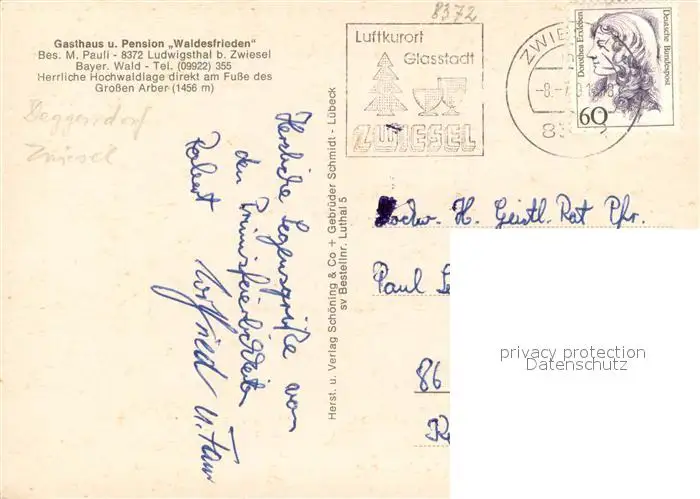 8372
Gasthaus u. Pension „Waldesfrieden"
Bes. M. Pauli - 8372 Ludwigsthal b. Zwiesel
Bayer. Wald - Tel. (09922) 355
Herrliche Hochwaldlage direkt am Fuße des
Großen Arber (1456 m)
Deggendorf
Zwiesel
Luftkurort
Glasstadt
ZWIESEL
ZWIE
-8.-7.
83
Dorothea Erxleben
Deutsche Bundespost
60
Herzliche Segensgrüße von
den Primizfeierlichkeiten
Robert Wilfried u.
Herst. u. Verlag Schöning & Co + Gebrüder Schmidt - Lübeck
sv Bestellnr. Luthal 5
Hochw. H. Geistl. Rat Pfr.
Paul
86
privacy protection
Datenschutz